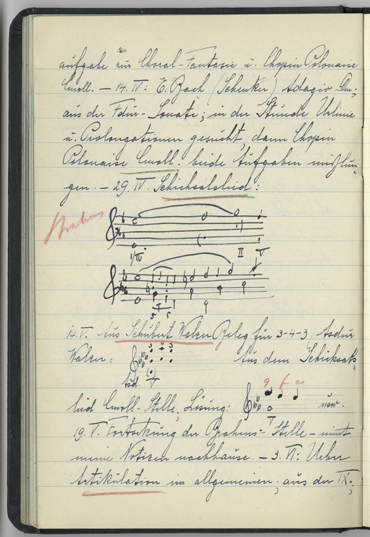 aufgabe zur Choral-Fantasie u. Chopin Polonaise
Cmoll. – 14. IV: E. Bach (Schenker) Adagio
aus der Fdur-Sonate; in der Stunde Urlinie
u. Prolongationen gesucht, dann Chopin
Polonaise Cmoll: beide Aufgaben mißlun-
gen. – 29. IV. Schicksalslied:
Brahms
II V
14. V. Aus Schubert Walzer Beleg für 3-4-3, Asdur
Walzer: Aus dem Schicksals-
lied Cmoll-Stelle, Lösung: usw.
19. V. Fortsetzung der Brahms-Stelle – nimmt
meine Notizen nachhause. – 3. VI: Ueber
Artikulation im allgemeinen; aus der IX.;